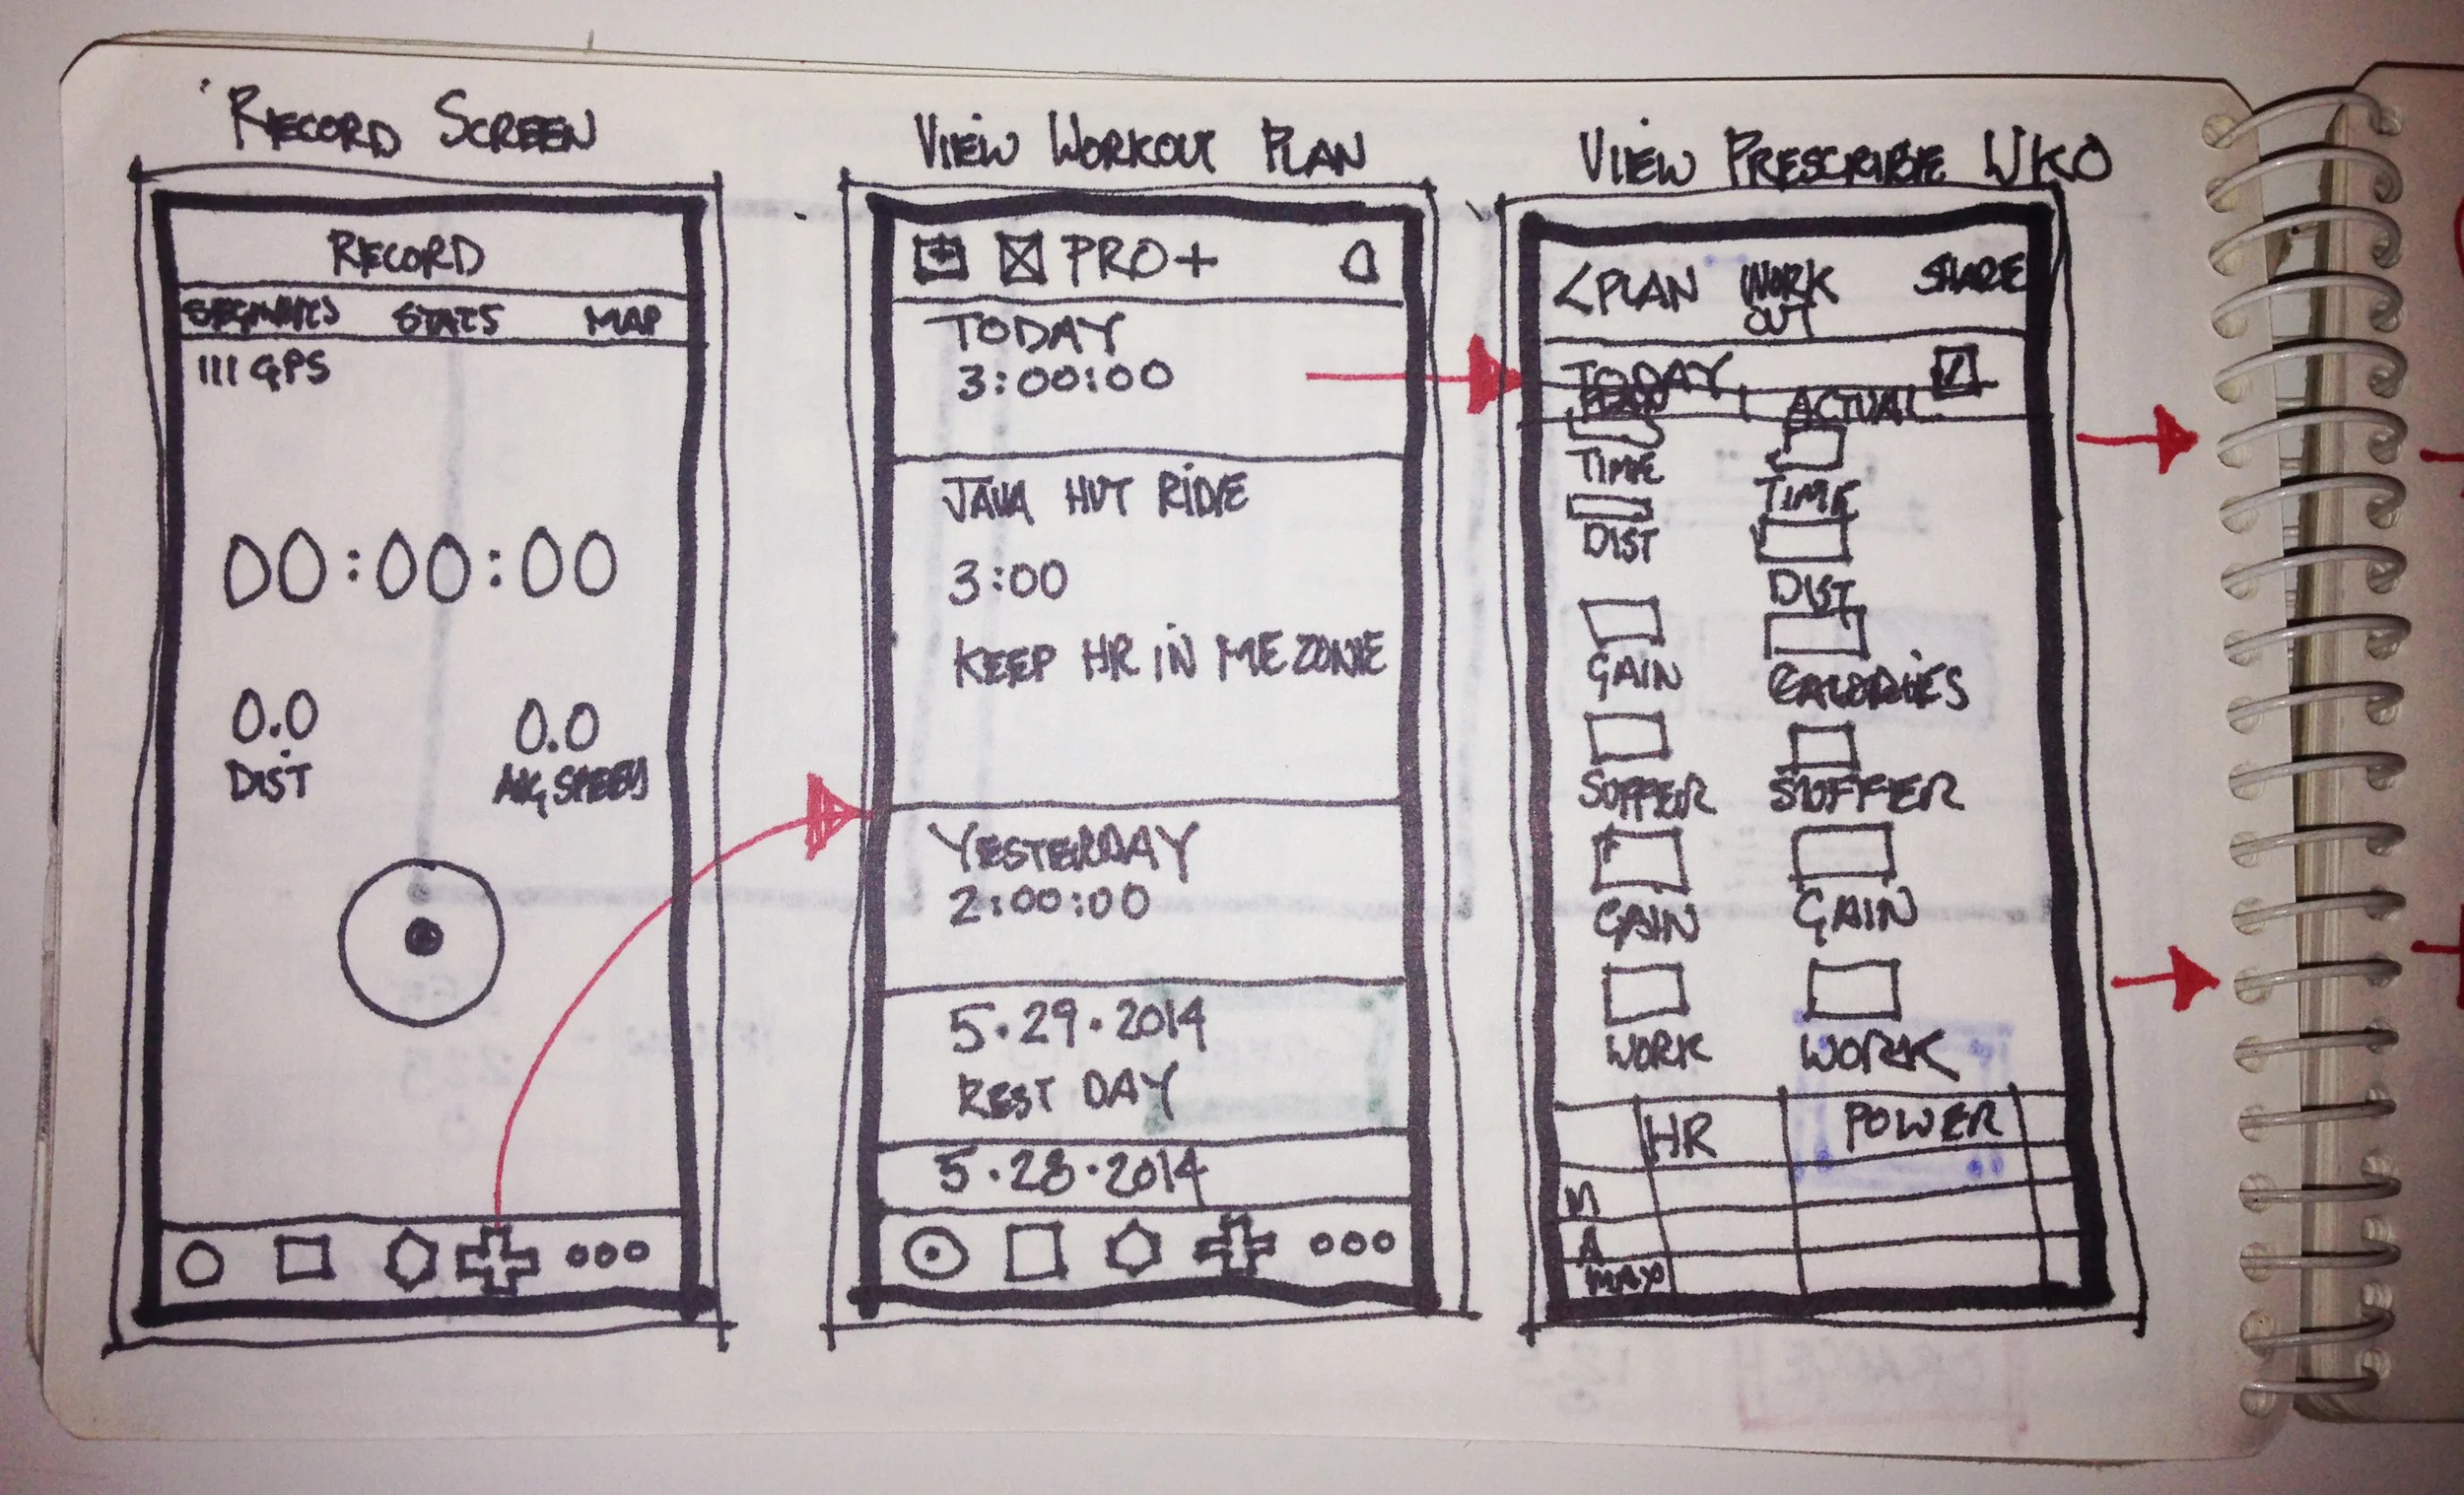 RECORD SCREEN
RECORD
SEGMENTS STATS MAP
III GPS
00:00:00
0.0 0.0
DIST AVG SPEED
VIEW WORKOUT PLAN
PRO+
TODAY
3:00:00
JAVA HUT RIDE
3:00
KEEP HR IN ME ZONE
YESTERDAY
2:00:00
5.29.2014
REST DAY
5.28.2014
VIEW PRESCRIBE WKO
<PLAN WORK OUT SHARE
TODAY
ACTUAL
TIME TIME
DIST DIST
GAIN CALORIES
SUFFER SUFFER
GAIN GAIN
WORK WORK
HR POWER
M
A
MAX